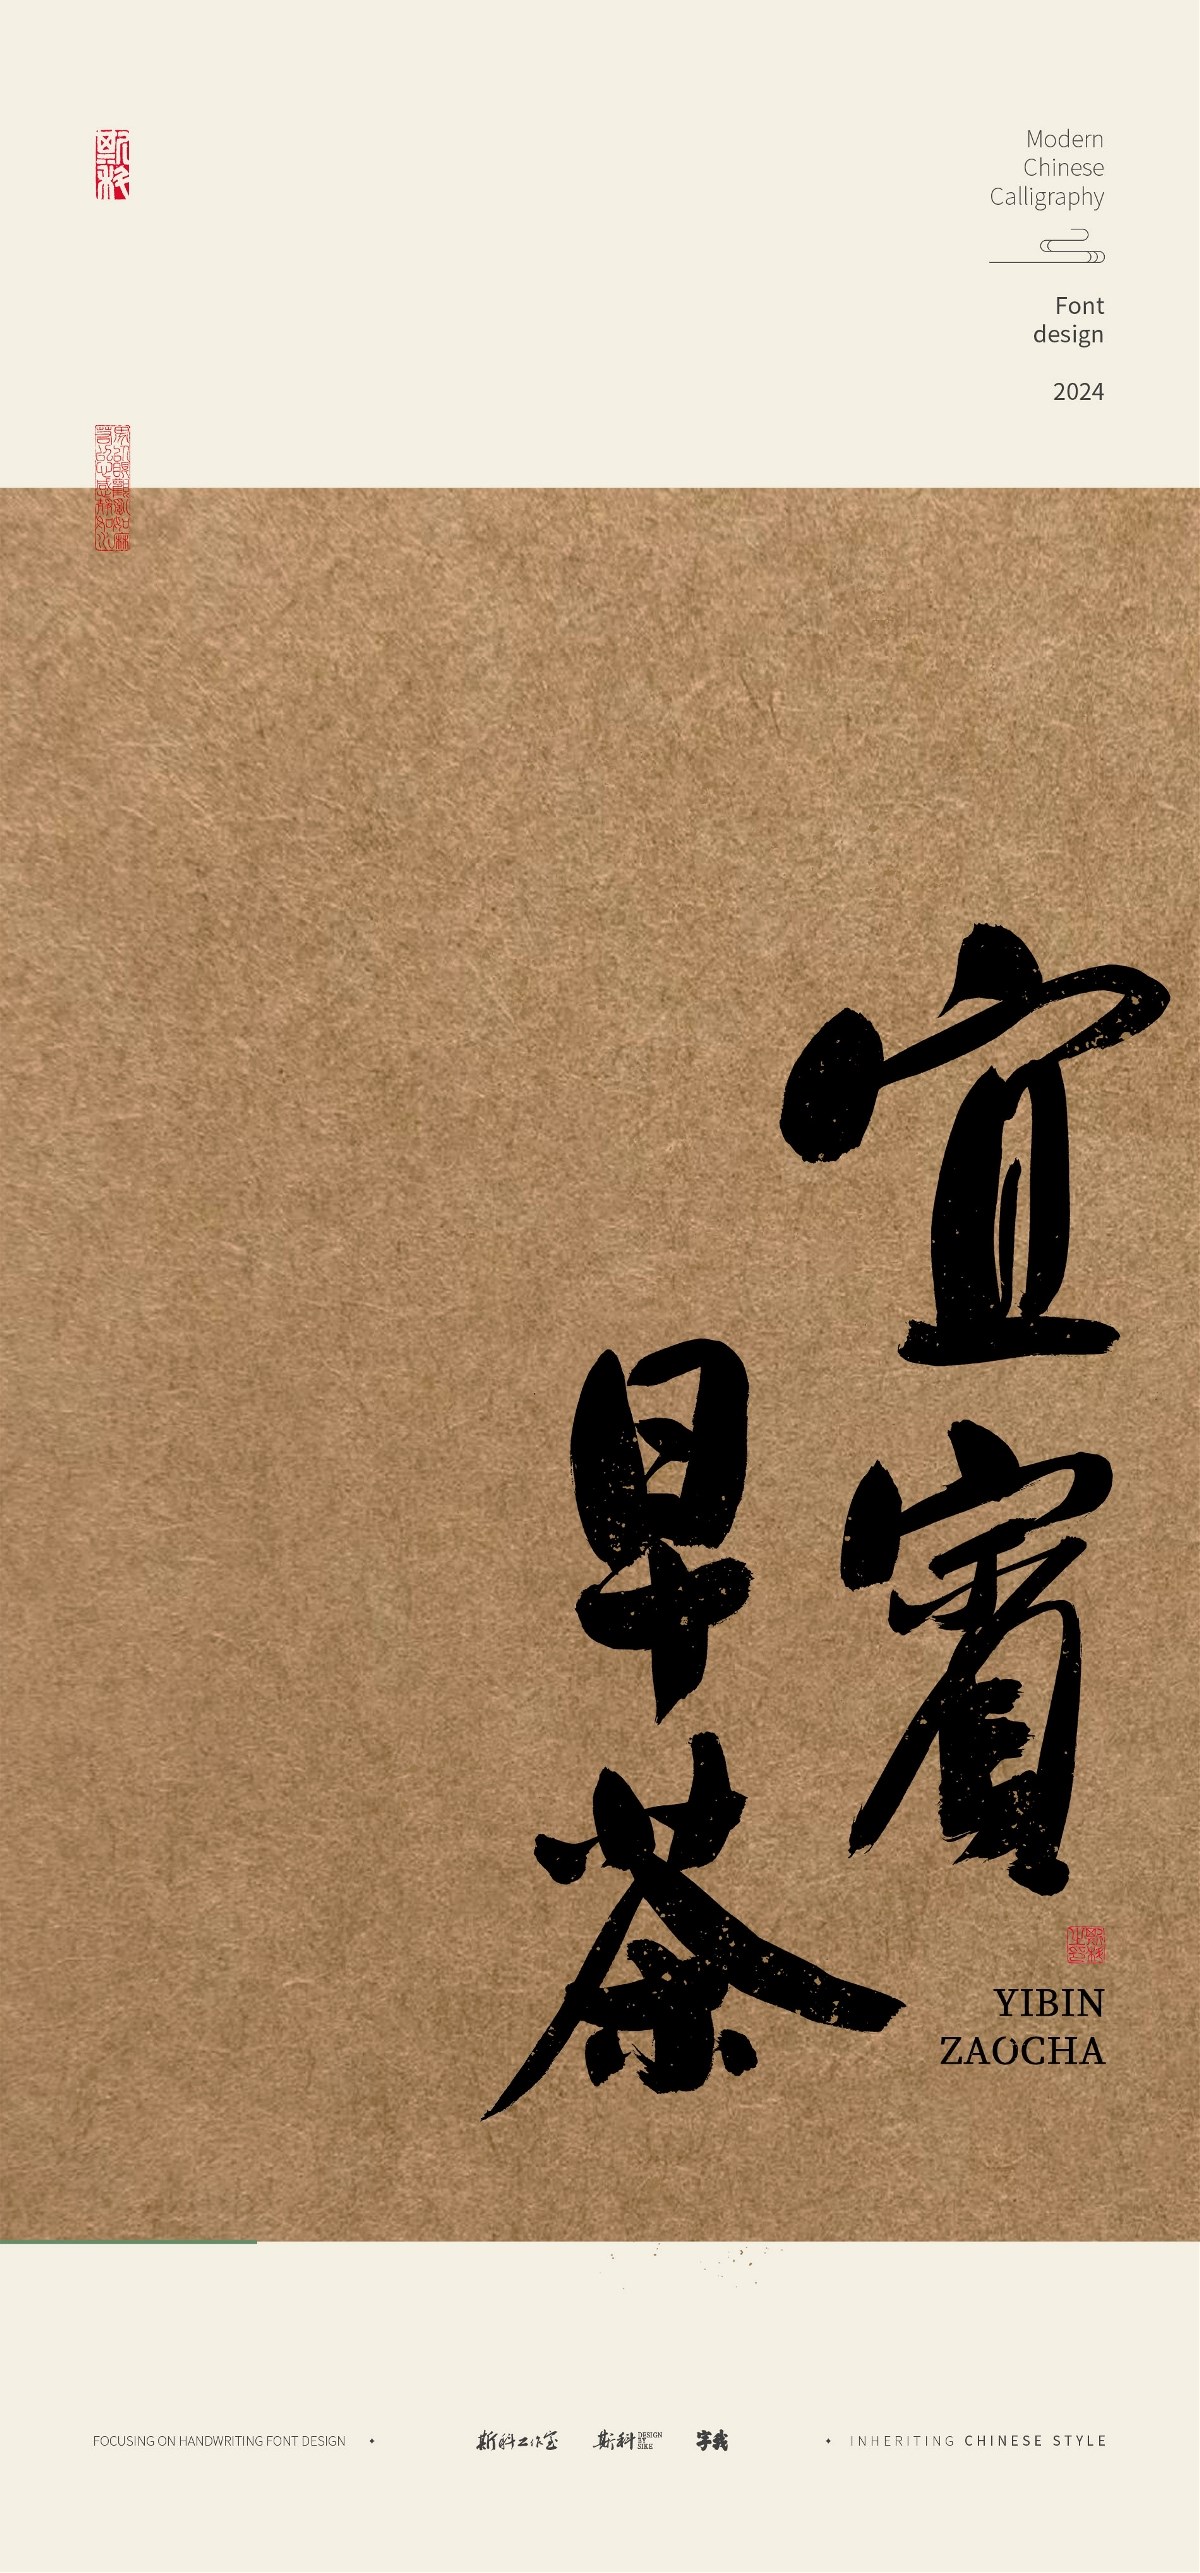 斯科
Modern
Chinese
Calligraphy
Font
design
2024
宜賓
早茶
YIBIN
ZAOCHA
FOCUSING ON HANDWRITING FONT DESIGN
斯科工作室
斯科
DESIGN
BY
SIKE
字我
INHERITING CHINESE STYLE